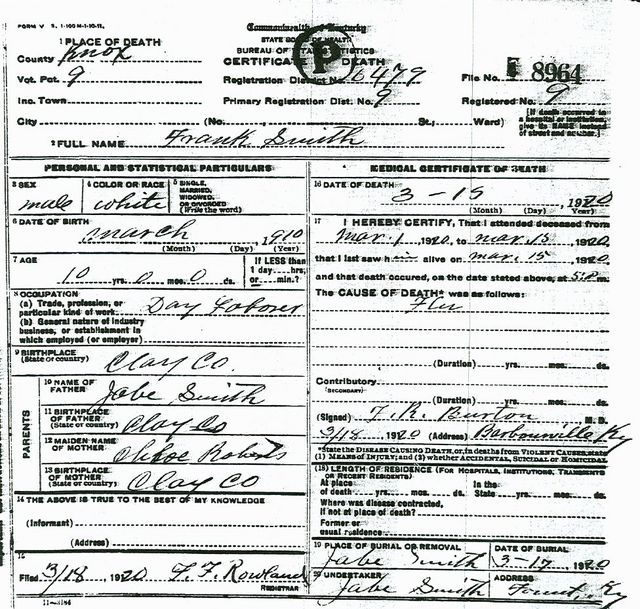 FORM V. S. 1-100 M-1-10-12.
Commonwealth of Kentucky
STATE BOARD OF HEALTH
BUREAU OF VITAL STATISTICS
CERTIFICATE OF DEATH
P
1 PLACE OF DEATH
County Knox
Vot. Pct. 9 Registration District No. 6479 File No. 8964
Inc. Town Primary Registration Dist. No. 9 Registered No. 9
City (No. St.; Ward)
[If death occurred in a hospital or institution, give its NAME instead of street and number.]
2 FULL NAME Frank Smith
PERSONAL AND STATISTICAL PARTICULARS
3 SEX male
4 COLOR OR RACE white
5 SINGLE, MARRIED, WIDOWED, OR DIVORCED (Write the word)
6 DATE OF BIRTH
March 1910
(Month) (Day) (Year)
7 AGE
10 yrs. 0 mos. 0 ds.
If LESS than 1 day....hrs. or....min.?
8 OCCUPATION
(a) Trade, profession, or particular kind of work Day Laborer
(b) General nature of industry business, or establishment in which employed (or employer)
9 BIRTHPLACE
(State or country) Clay Co.
PARENTS
10 NAME OF FATHER Jabe Smith
11 BIRTHPLACE OF FATHER (State or country) Clay Co
12 MAIDEN NAME OF MOTHER Chloe Roberts
13 BIRTHPLACE OF MOTHER (State or country) Clay Co
14 THE ABOVE IS TRUE TO THE BEST OF MY KNOWLEDGE
(Informant)
(Address)
15
Filed 3/18 1920 F. F. Rowland
REGISTRAR
11-3184
MEDICAL CERTIFICATE OF DEATH
16 DATE OF DEATH
3 - 15 1920
(Month) (Day) (Year)
17 I HEREBY CERTIFY, That I attended deceased from
Mar. 1 1920, to Mar. 15 1920,
that I last saw him alive on Mar. 15 1920,
and that death occured, on the date stated above, at m.
The CAUSE OF DEATH* was as follows:
Flu
(Duration) yrs. mos. ds.
Contributory
(SECONDARY)
(Duration) yrs. mos. ds.
(Signed) T. R. Burton M. D.
3/18 1920 (Address) Barbourville Ky
*State the DISEASE CAUSING DEATH, or, in deaths from VIOLENT CAUSES, state (1) MEANS OF INJURY; and (2) whether ACCIDENTAL, SUICIDAL or HOMICIDAL
(18) LENGTH OF RESIDENCE (FOR HOSPITALS, INSTITUTIONS, TRANSIENTS OR RECENT RESIDENTS)
At place of death yrs. mos. ds. In the State yrs. mos. ds.
Where was disease contracted, if not at place of death?
Former or usual residence
19 PLACE OF BURIAL OR REMOVAL DATE OF BURIAL
Jabe Smith 3-17 1920
20 UNDERTAKER ADDRESS
Jabe Smith Ky